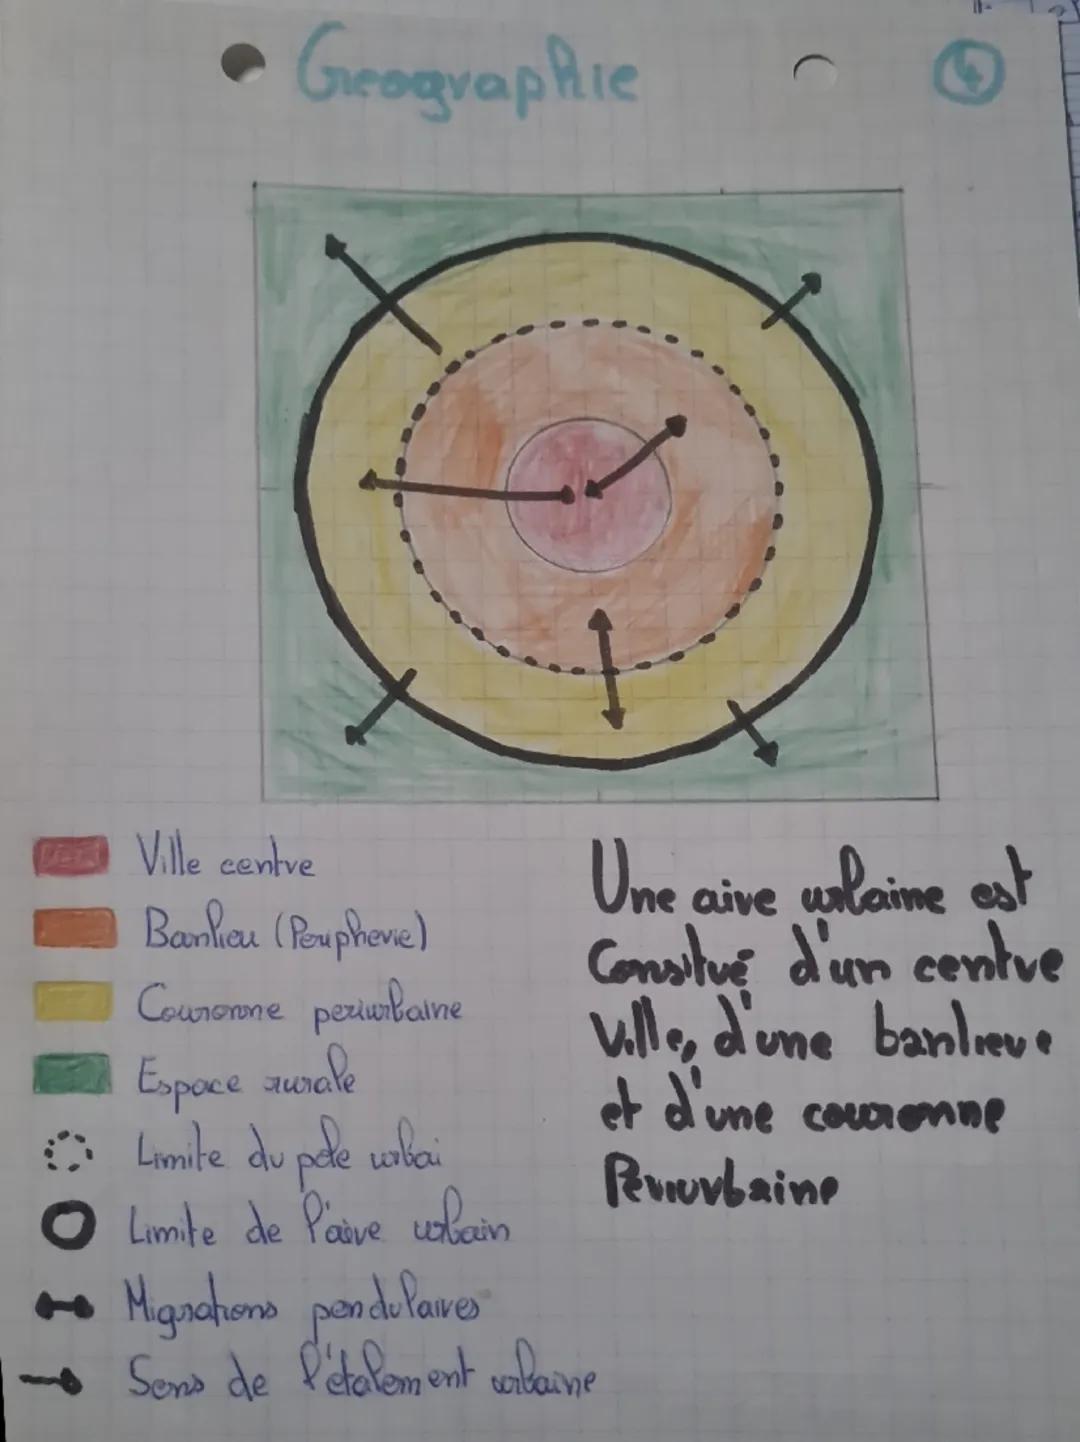 Geographie
4
Ville centre
Banlieu (Peripherie)
Couronne periurbaine
Espace rurale
Limite du pôle urbai
Limite de l'aire urbain
Migrations pendulaires
Sens de l'étalement urbaine
Une aire urbaine est
Consitué d'un centre
Ville, d'une banlieue
et d'une couronne
Periurbaine